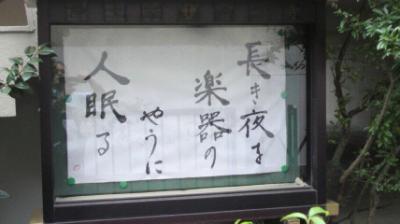 長き夜を
楽器の
やうに
人眠る